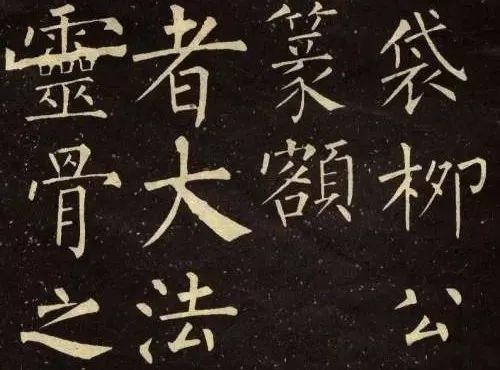 袋柳公
篆額
者大法
靈骨之